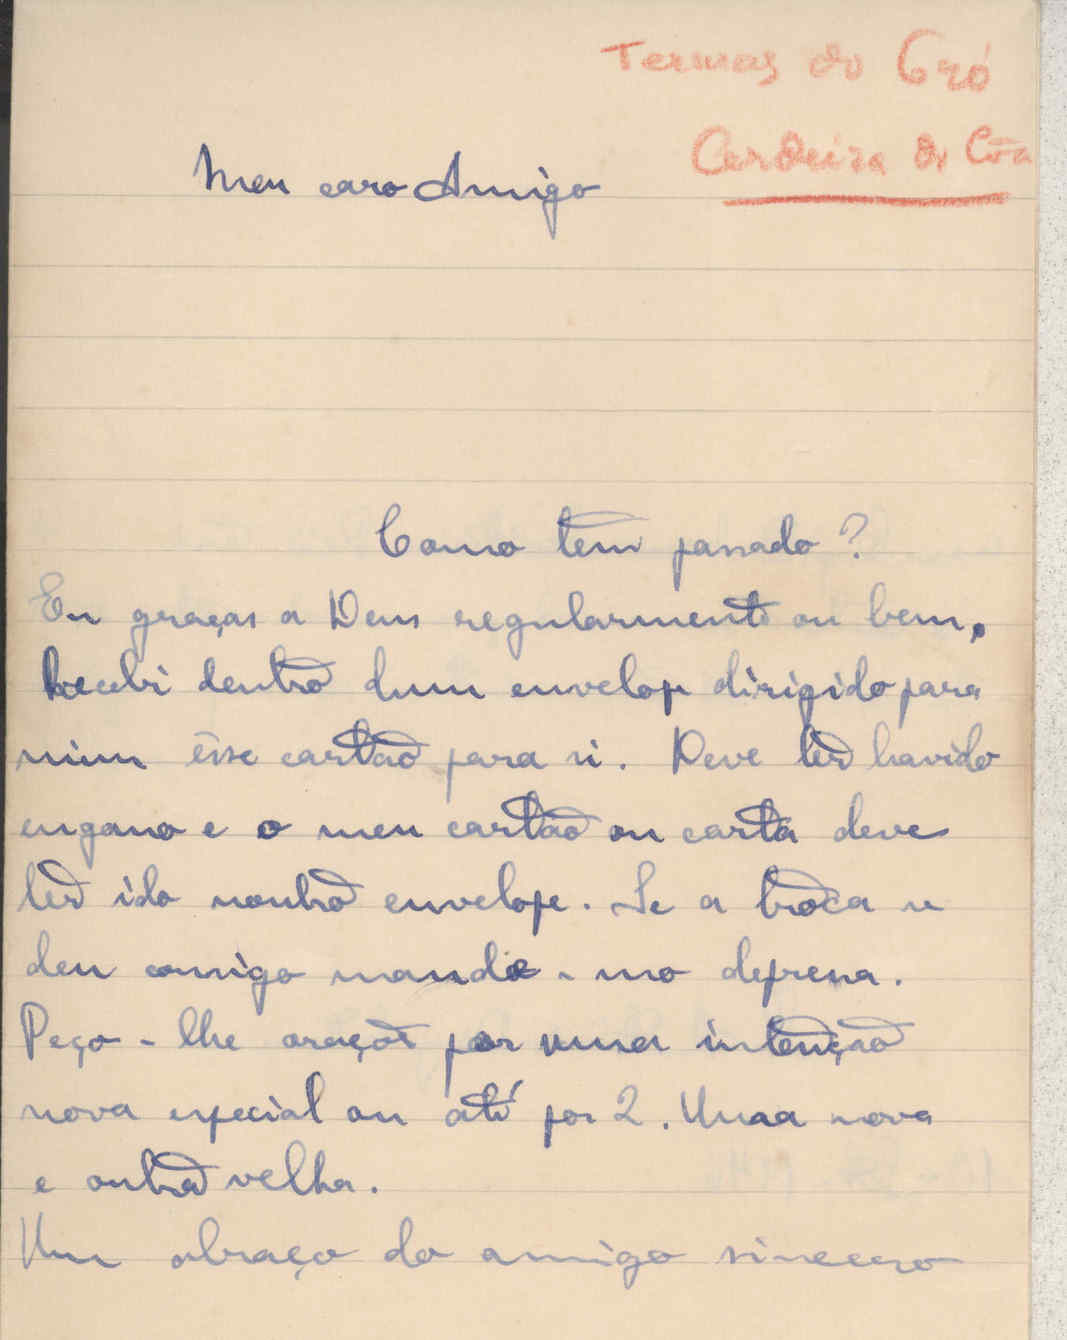 Termas do Cró
Cerdeira do Côa
Meu caro Amigo
Como tem passado?
Eu graças a Deus regularmente ou bem.
Recebi dentro dum envelope dirigido para
mim êsse cartão para si. Deve ter havido
engano e o meu cartão ou carta deve
ter ido noutro envelope. Se a troca se
deu comigo mande-mo depressa.
Peço-lhe orações por uma intenção
nova especial ou até por 2. Uma nova
e outra velha.
Um abraço do amigo sincero